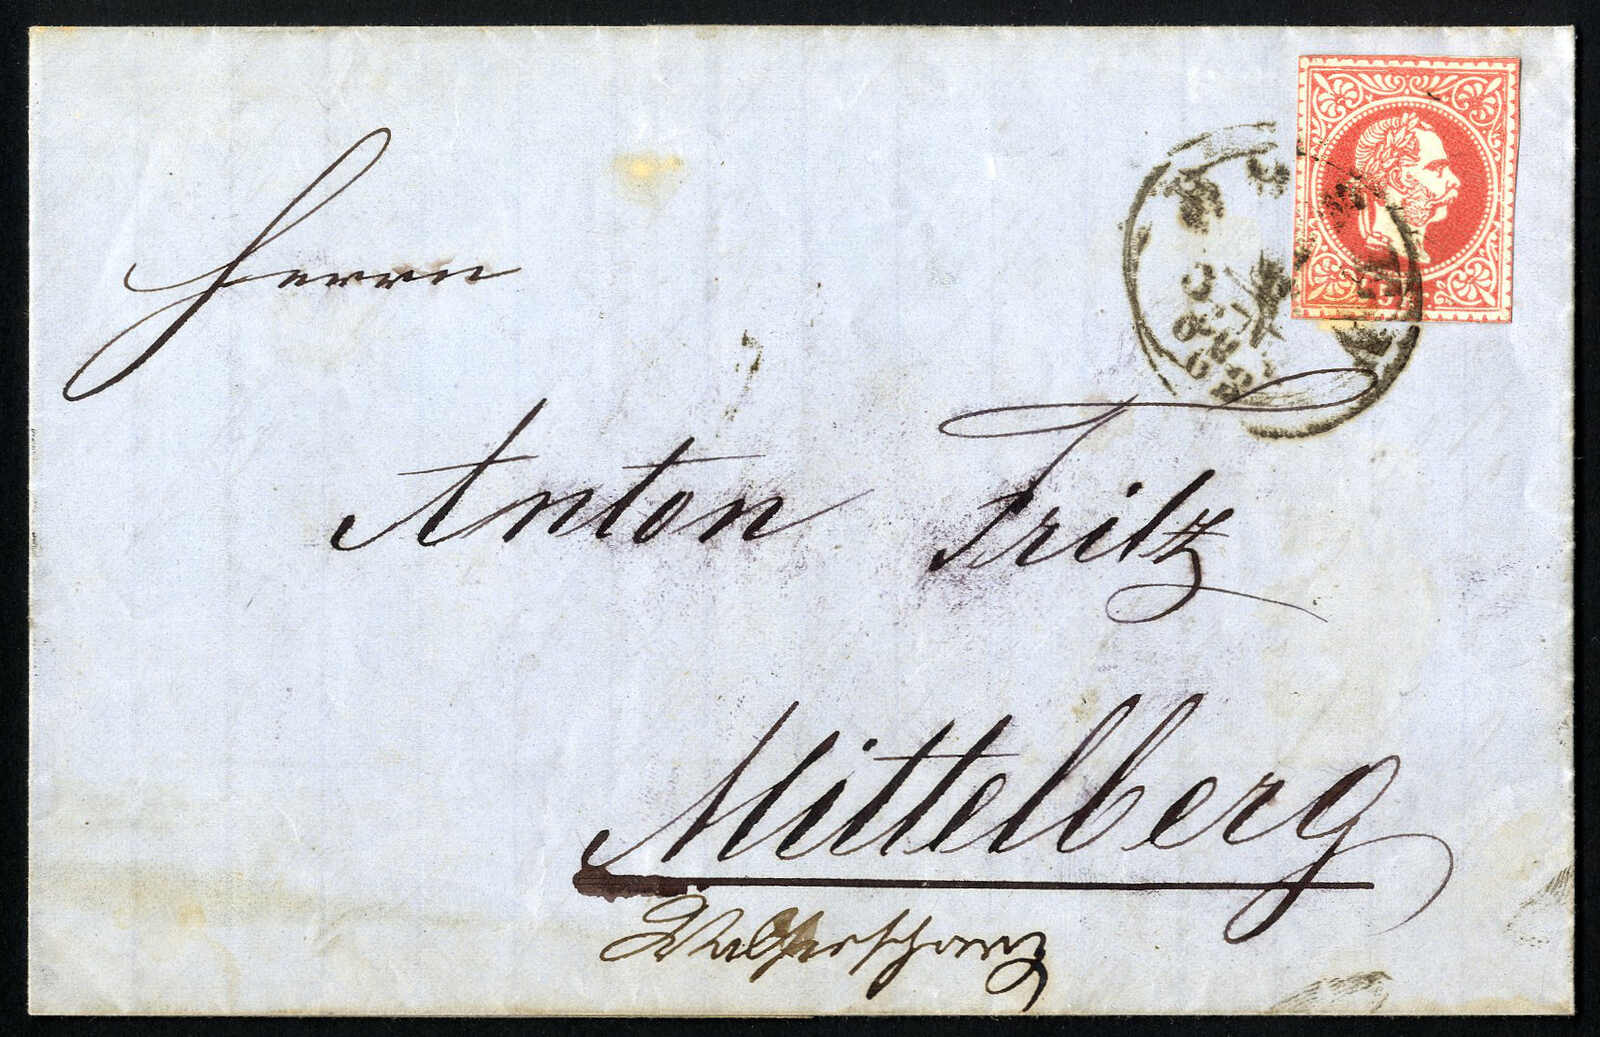 Herrn
Anton Fritz
Mittelberg